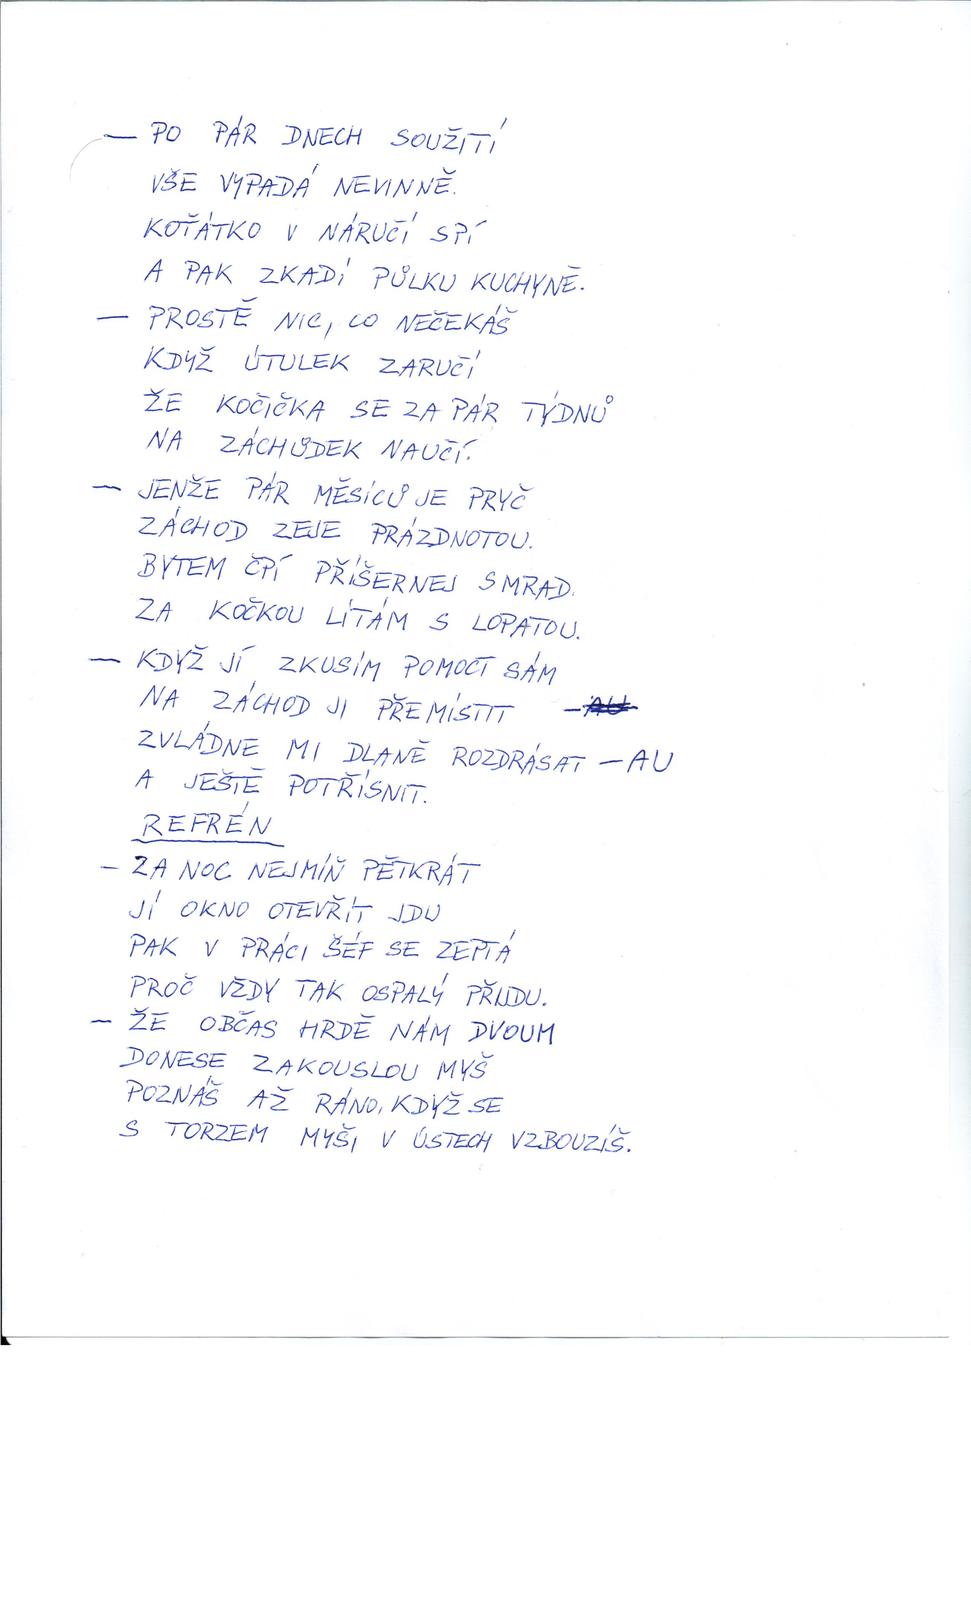 — PO PÁR DNECH SOUŽITÍ
VŠE VYPADÁ NEVINNĚ.
KOŤÁTKO V NÁRUČÍ SPÍ
A PAK ZKADÍ PŮLKU KUCHYNĚ.
— PROSTĚ NIC, CO NEČEKÁŠ
KDYŽ ÚTULEK ZARUČÍ
ŽE KOČIČKA SE ZA PÁR TÝDNŮ
NA ZÁCHŮDEK NAUČÍ.
— JENŽE PÁR MĚSÍCŮ JE PRYČ
ZÁCHOD ZEJE PRÁZDNOTOU.
BYTEM ČPÍ PŘÍŠERNEJ SMRAD.
ZA KOČKOU LÍTÁM S LOPATOU.
— KDYŽ JÍ ZKUSÍM POMOCT SÁM
NA ZÁCHOD JI PŘEMÍSTIT — AU
ZVLÁDNE MI DLANĚ ROZDRÁSAT — AU
A JEŠTĚ POTŘÍSNIT.
REFRÉN
— ZA NOC NEJMÍŇ PĚTKRÁT
JÍ OKNO OTEVŘÍT JDU
PAK V PRÁCI ŠÉF SE ZEPTÁ
PROČ VŽDY TAK OSPALÝ PŘIJDU.
— ŽE OBČAS HRDĚ NÁM DVOUM
DONESE ZAKOUSLOU MYŠ
POZNÁŠ AŽ RÁNO, KDYŽ SE
S TORZEM MYŠI V ÚSTECH VZBOUZÍŠ.